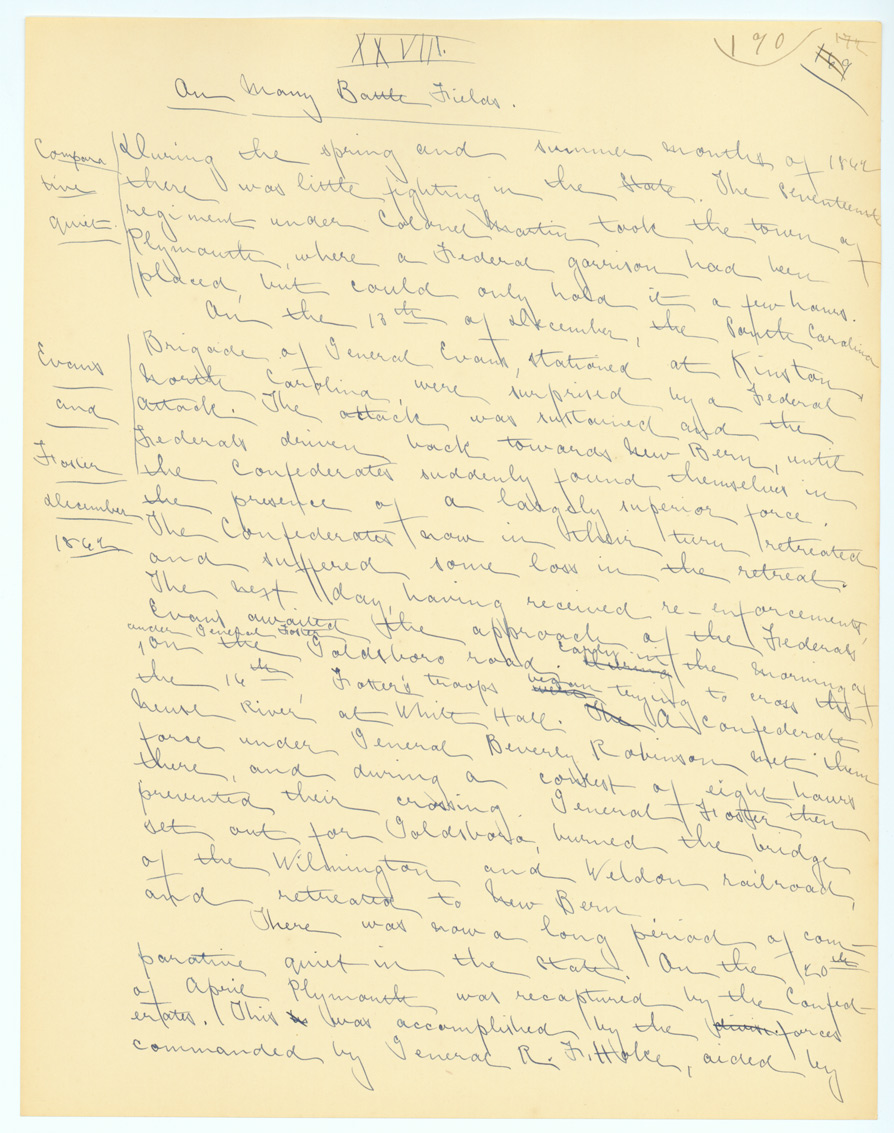 XXVIII.
190
172
169
On Many Battle Fields.
Compara
tive
quiet.
During the spring and summer months of 1862
there was little fighting in the State. The seventeenth
regiment under Colonel Martin took the town of
Plymouth, where a Federal garrison had been
placed, but could only hold it a few hours.
On the 13th of December, the South Carolina
Evans
and
Foster
December
1862
Brigade of General Evans, stationed at Kinston
North Carolina, were surprised by a Federal
attack. The attack was sustained and the
Federals driven back towards New Bern, until
the Confederates suddenly found themselves in
the presence of a largely superior force.
The Confederates now in their turn retreated
and suffered some loss in the retreat.
The next day, having received re-enforcements,
Evans awaited the approach of the Federals
under General Foster
on the Goldsboro road. Early in the morning of
the 16th Foster's troops began trying to cross the
Neuse River at White Hall. The A Confederate
force under General Beverly Robinson met them
there, and during a contest of eight hours
prevented their crossing. General Foster then
set out for Goldsboro, burned the bridge
of the Wilmington and Weldon railroad,
and retreated to New Bern
There was now a long period of com-
parative quiet in the State. On the 20th
of April Plymouth was recaptured by the Confed-
erates. This was accomplished by the forces
commanded by General R. F. Hoke, aided by